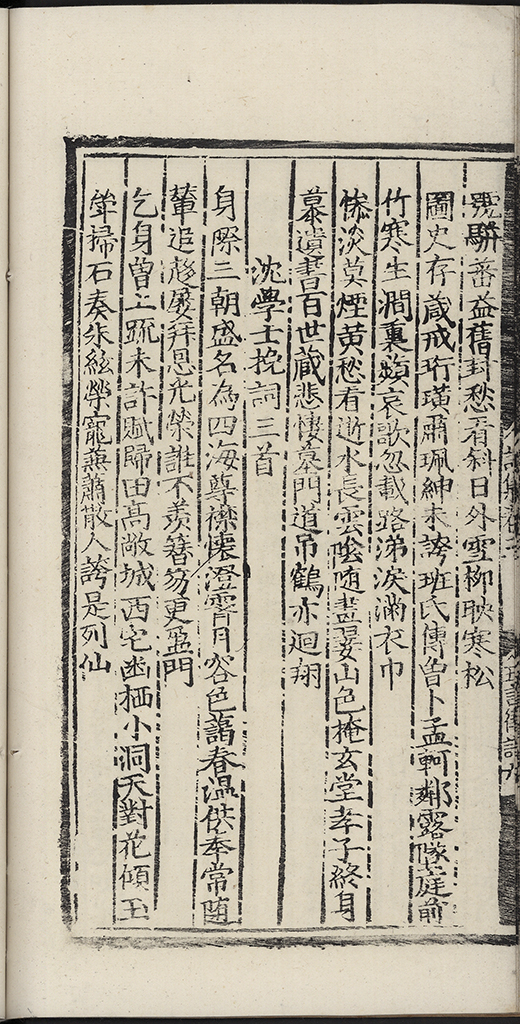 駢蕃益舊封愁看斜日外雪柳映寒松
圖史存葴戒珩璜肅珮紳未誇班氏傳曾卜孟軻鄰露隊莖庭前
竹寒生澗裏蘋哀歌忽載路涕淚滿衣巾
慘淡莫煙黄愁看逝水長雲陰随畫翣山色掩玄堂孝子終身
慕遺書百世藏悲悽墓門道吊鶴亦迴翔
沈學士挽詞三首
身際三朝盛名為四海尊襟懐澄霽月容色藹春温供奉常随
輦追趍屢拜恩光榮誰不羡簪笏更盈門
乞身曾上疏未許賦歸田髙敞城西宅幽栖小洞天對花傾玉
斚掃石奏朱絃榮寵蕪蕭散人誇是列仙